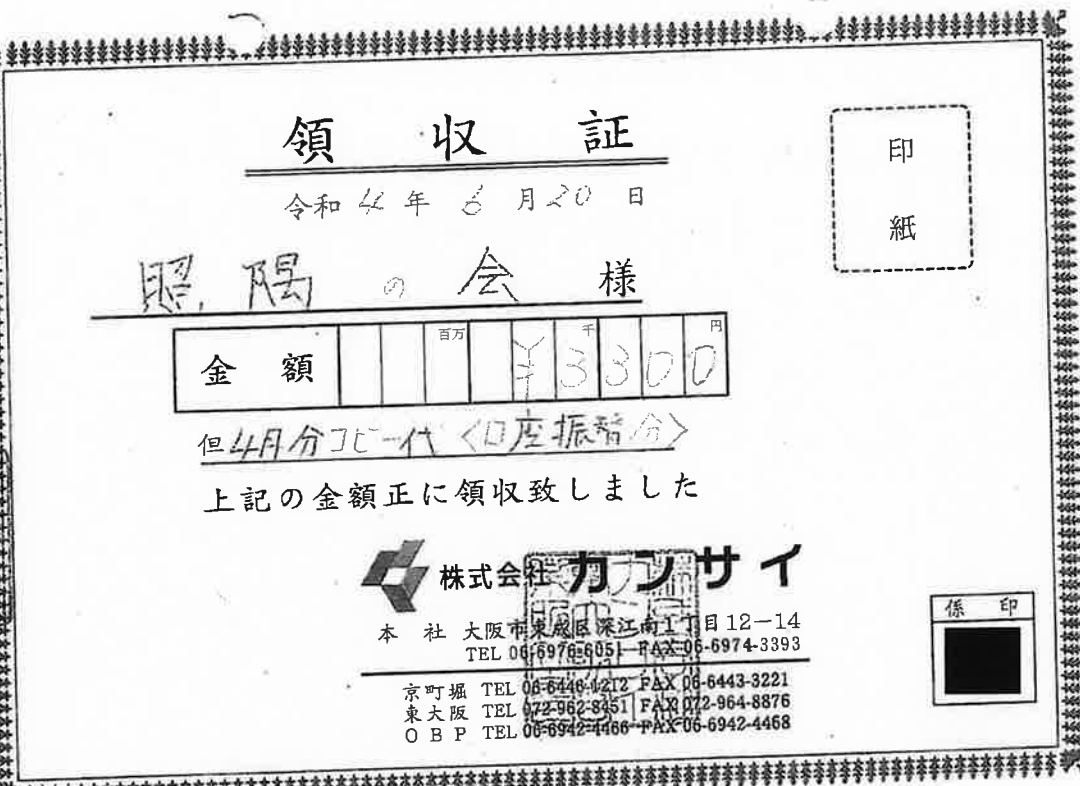 領収証
令和4年6月20日
照陽の会様
金額 百万 千 円 ¥3300
但4月分コピー代〈口座振替分〉
上記の金額正に領収致しました
株式会社カンサイ
本社 大阪市東成区深江南1丁目12-14
TEL 06-6976-6051 FAX 06-6974-3393
京町堀 TEL 06-6446-1212 FAX 06-6443-3221
東大阪 TEL 072-962-8451 FAX 072-964-8876
OBP TEL 06-6942-4466 FAX 06-6942-4468
印紙
係印